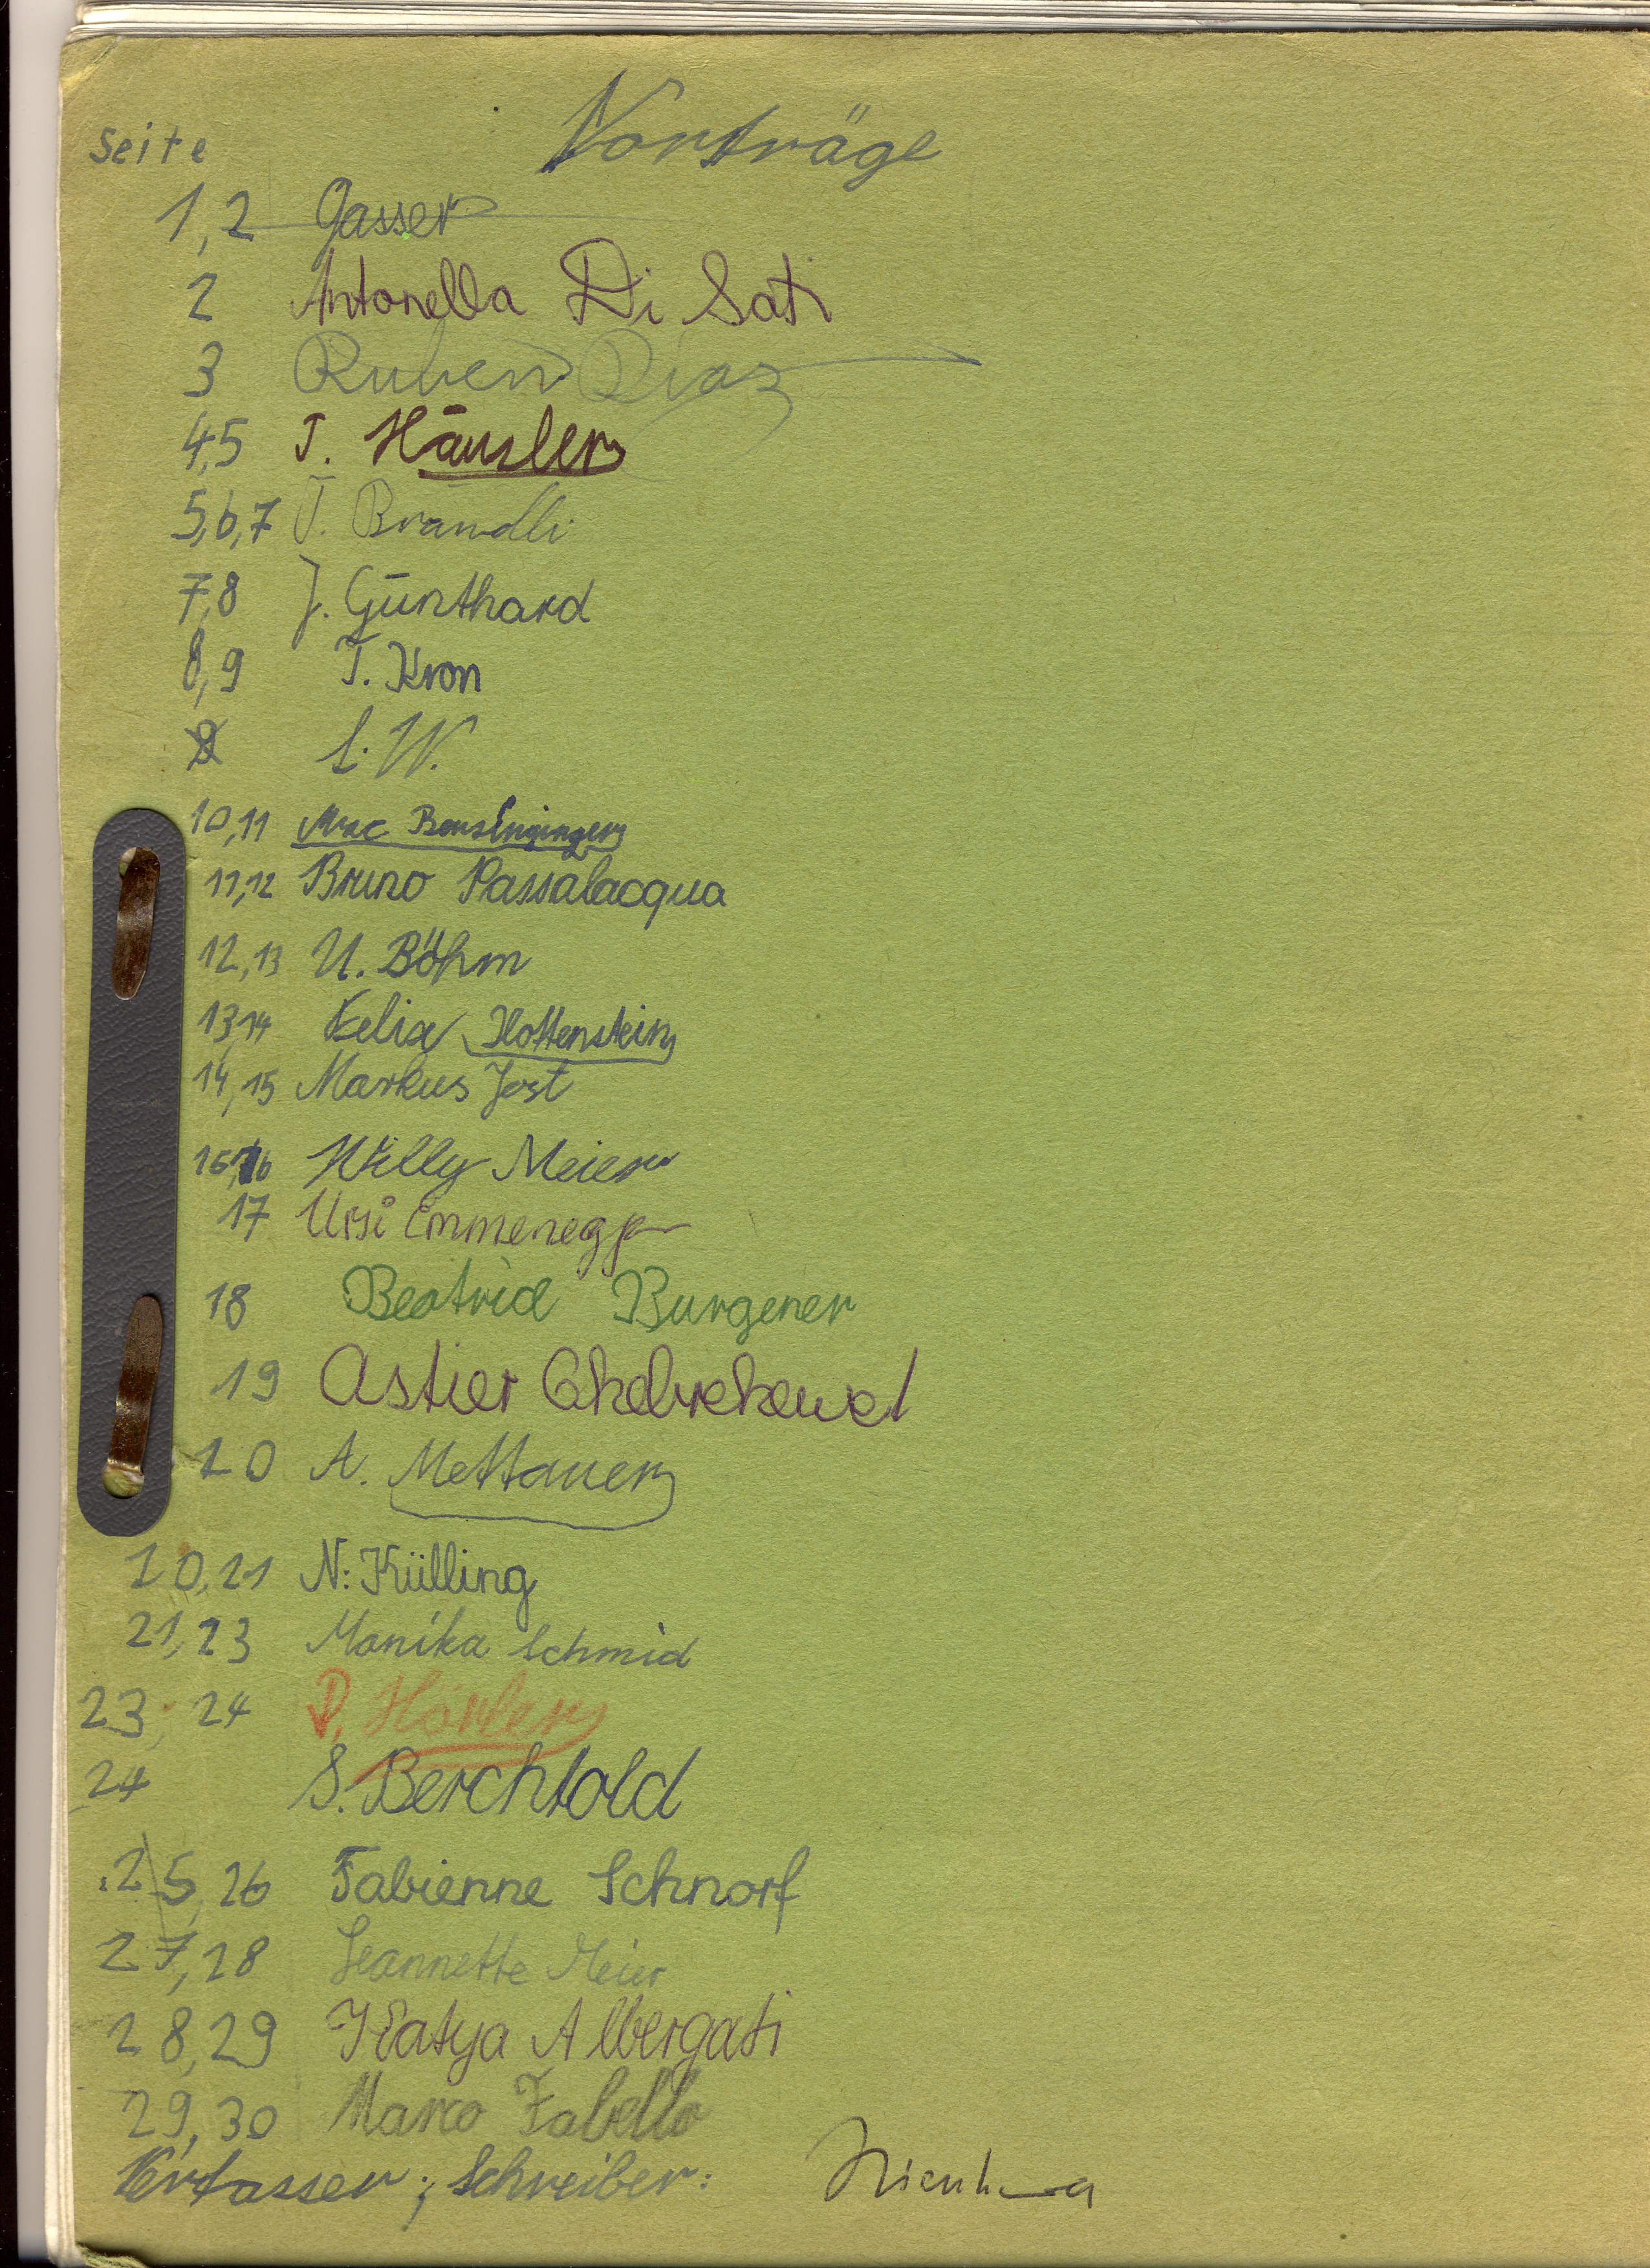 Vorträge
Seite
1,2 Gasser
2 Antonella Di Sati
3 Ruben Diaz
4,5 T. Häusler
5,6,7 T. Brandli
7,8 J. Günthard
8,9 T. Kron
9 L. W.
10,11
11,12 Bruno Passalacqua
12,13 U. Böhm
13,14 Felix Hottenstein
14,15 Markus Jost
15,16 Willy Meier
17 Ursi Emmenegg
18 Beatrice Burgener
19 Astier
20 A. Mettauer
20,21 N. Külling
21,23 Monika Schmid
23, 24 D. Hörler
24 S. Berchtold
25,26 Fabienne Schnorf
27,28 Jeannette Meier
28,29 Katya Albergati
29,30 Marco Zabello
Verfasser; Schreiber: